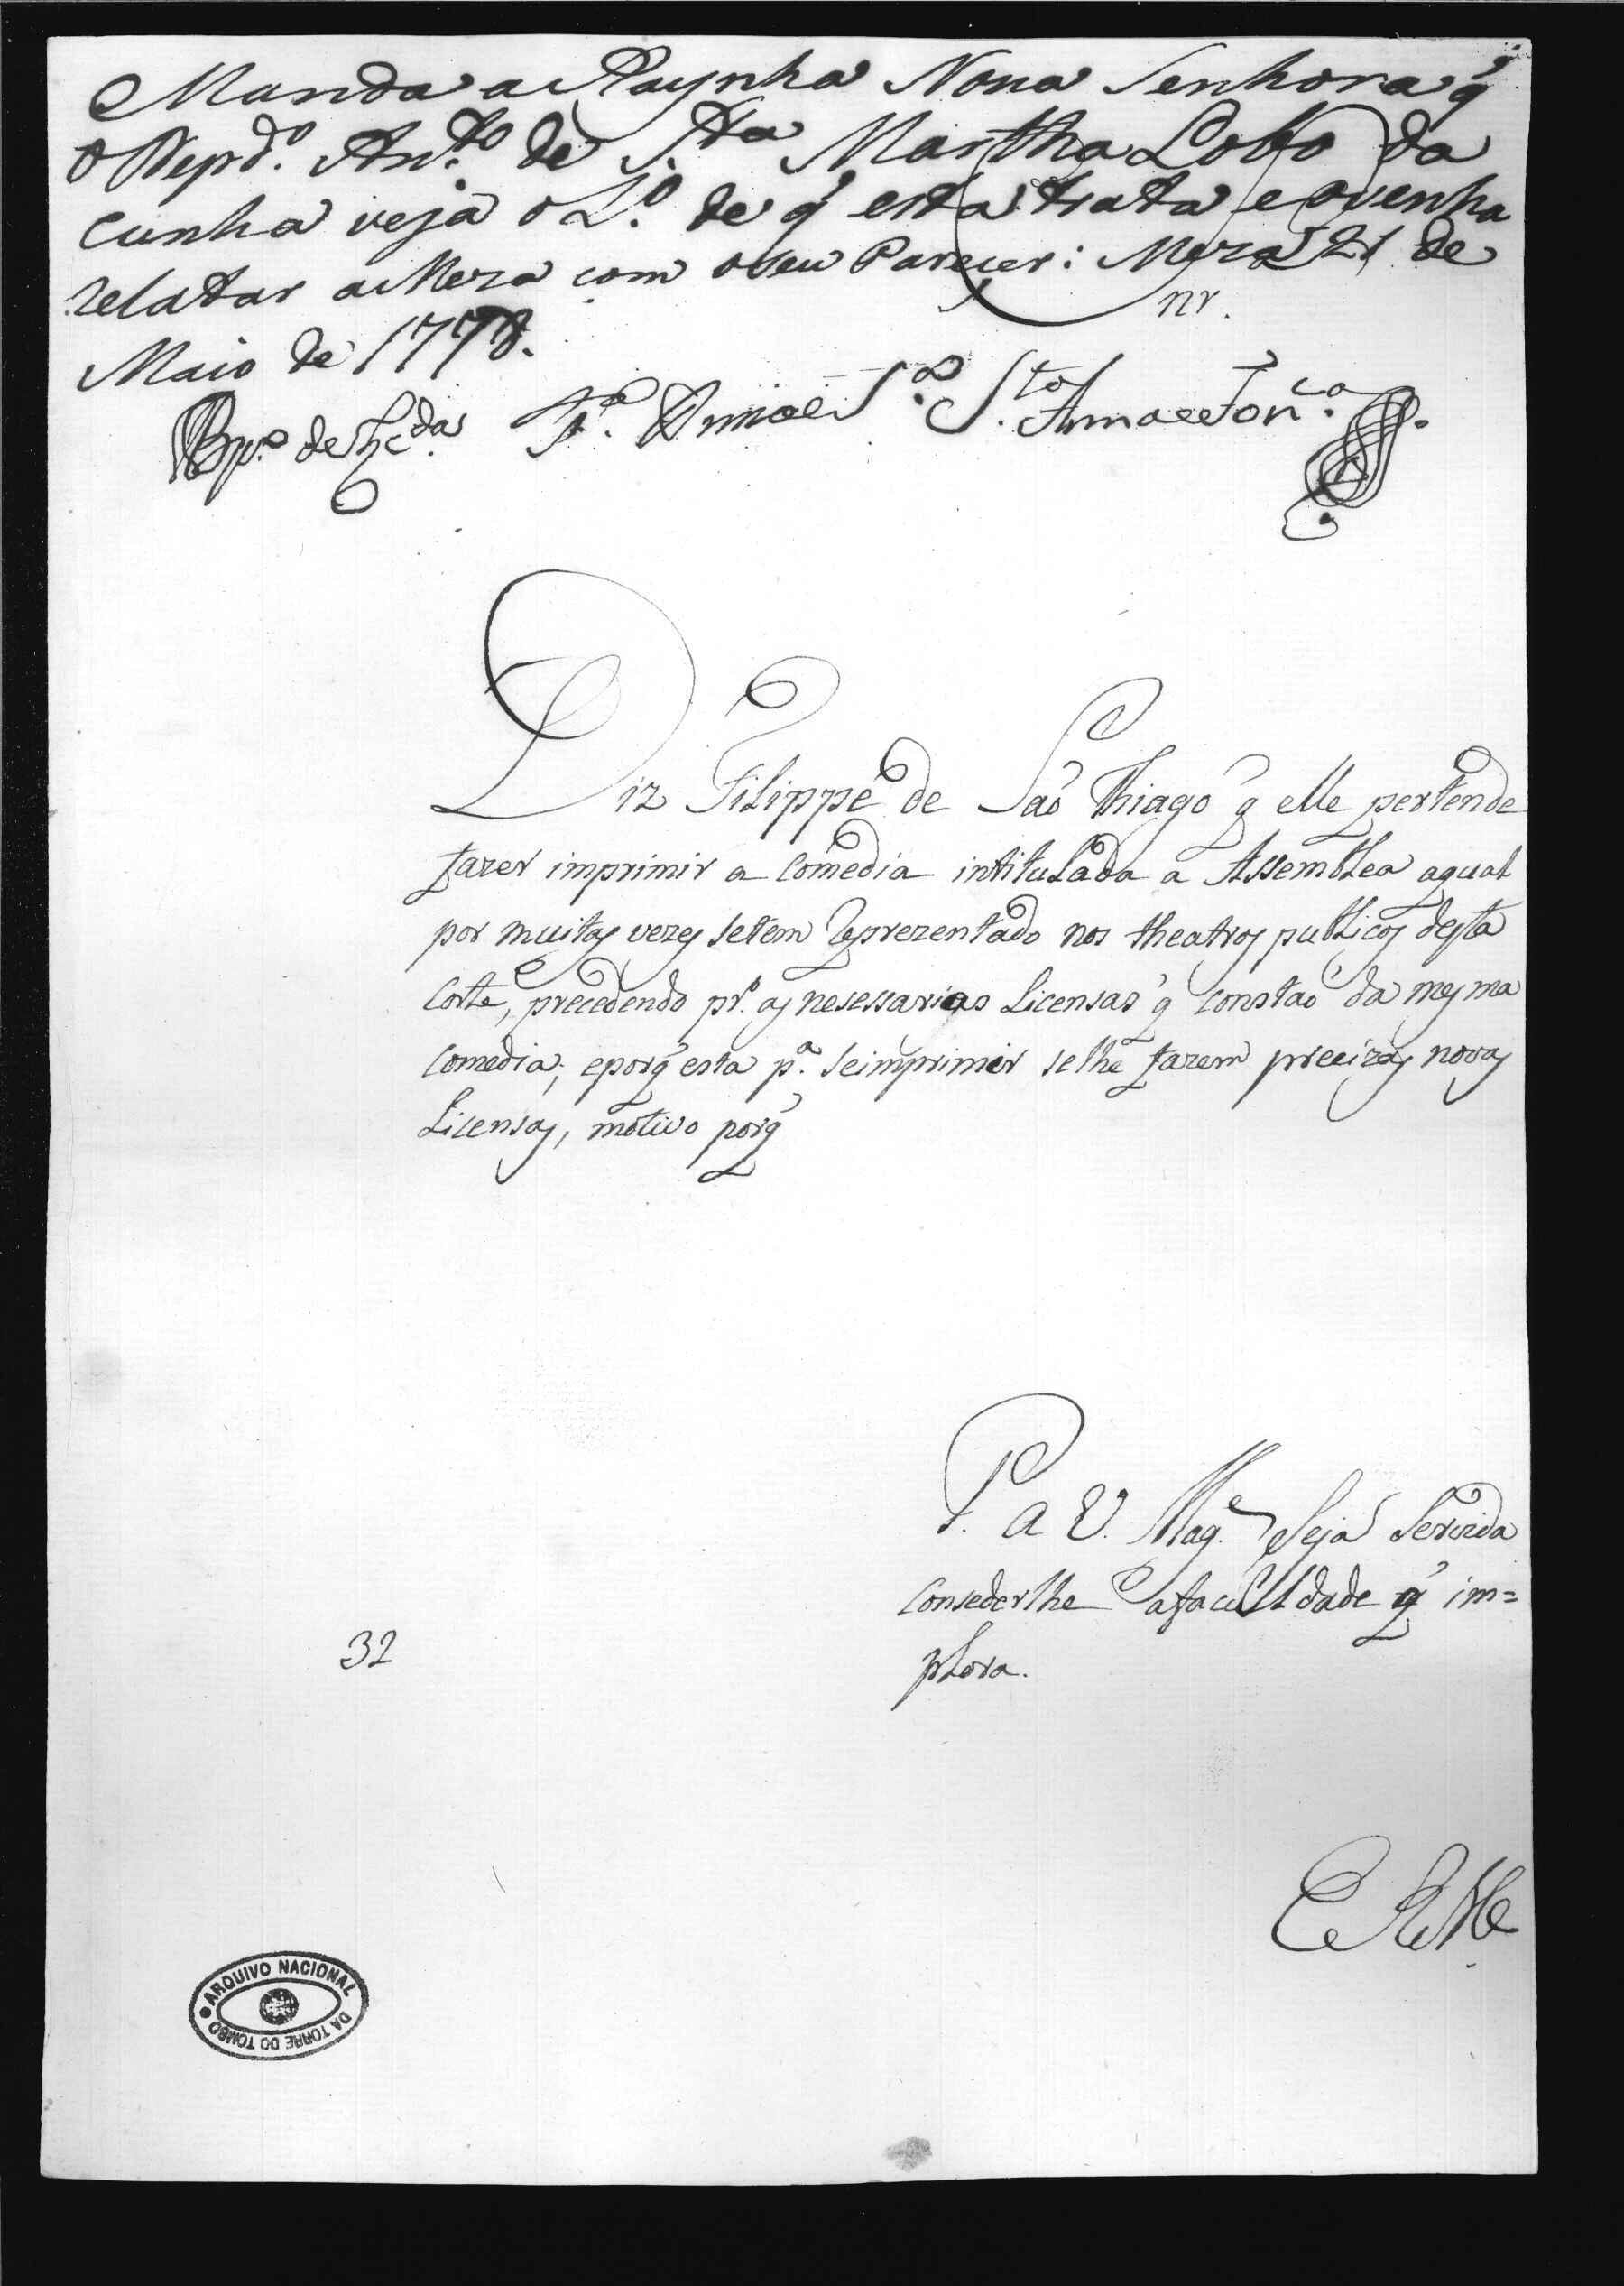 Manda a Raynha Nossa Senhora q̃
o Dep.do Ant.o de S.ta Martha Lobo da
Cunha veja o L.o de q̃ esta trata e o venha
relatar a Meza com o seu Parecer: Meza 21 de
Maio de 1778.
Snr.
Bp.o de
S.ta Anna e Fon.ca
Diz Filippe de Saõ Thiago q̃ elle pertende
fazer imprimir a Comedia intitulada a Assemblea aqual
por muitas vezes setem Reprezentado nos theatros publicos desta
Corte, precedendo pr.o as nesessarias Licensas q̃ constaõ da mesma
Comedia; eporq̃ esta p.a seimprimir selhe fazem precizas novas
Licensas, motivo porq̃
P. a V. Mag.e Seja Servida
Consederlhe afaculdade q̃ im=
plora.
32
E R Mce
ARQUIVO NACIONAL
DA TORRE DO TOMBO